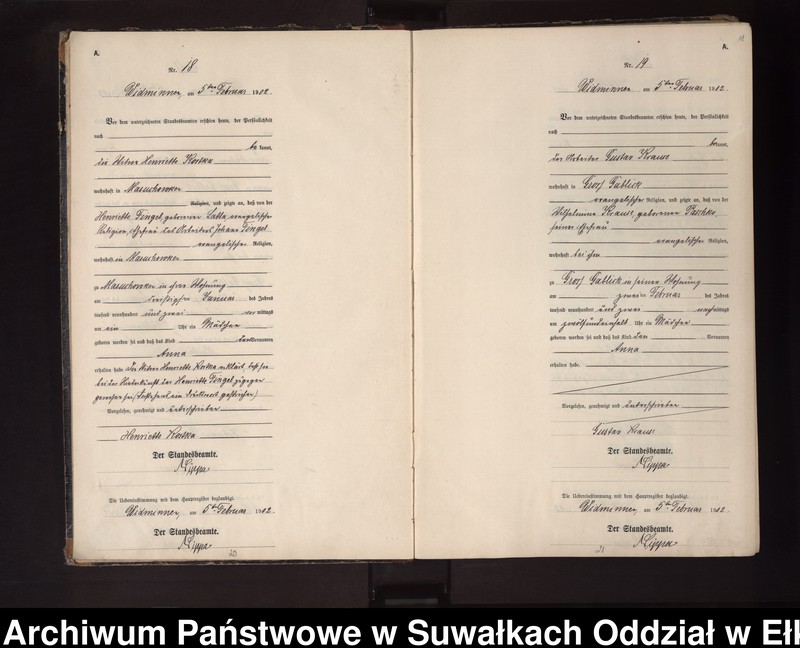 A.
Nr. 18
Widminnen, am 5ten Februar 1902.
Vor dem unterzeichneten Standesbeamten erschien heute, der Persönlichkeit
nach
be kannt,
die Witwe Henriette Kostka
wohnhaft in Masuchowken
Religion, und zeigte an, daß von der
Henriette Tengel, geborenen Latta evangelischer
Religion, Ehefrau des Arbeiters Johann Tengel
evangelischer Religion,
wohnhaft in Masuchowken
zu Masuchowken in ihrer Wohnung
am dreißigsten Januar des Jahres
tausend neunhundert und zwei vor mittags
um ein Uhr ein Mädchen
geboren worden sei und daß das Kind den Vornamen
Anna
erhalten habe. Die Witwe Henriette Kostka erklärt, daß sie
bei der Niederkunft der Henriette Tengel zugegen
gewesen sei.
Vorgelesen, genehmigt und unterschrieben
Henriette Kostka
Der Standesbeamte.
Lippa
Die Uebereinstimmung mit dem Hauptregister beglaubigt.
Widminnen, am 5ten Februar 1902.
Der Standesbeamte.
Lippa
20
A.
Nr. 19
Widminnen am 5ten Februar 1902.
Vor dem unterzeichneten Standesbeamten erschien heute, der Persönlichkeit
nach
be kannt,
der Arbeiter Gustav Kraus
wohnhaft in Groß Gablick
evangelischer Religion, und zeigte an, daß von der
Wilhelmine Kraus, geborenen Paschko,
seiner Ehefrau
evangelischer Religion,
wohnhaft bei ihm
zu Groß Gablick in seiner Wohnung
am zweiten Februar des Jahres
tausend neunhundert und zwei nachmittags
um zwölfundeinhalb Uhr ein Mädchen
geboren worden sei und daß das Kind den Vornamen
Anna
erhalten habe.
Vorgelesen, genehmigt und unterschrieben
Gustav Kraus
Der Standesbeamte.
Lippa
Die Uebereinstimmung mit dem Hauptregister beglaubigt.
Widminnen, am 5ten Februar 1902.
Der Standesbeamte.
Lippa
21
Archiwum Państwowe w Suwałkach Oddział w Ełk